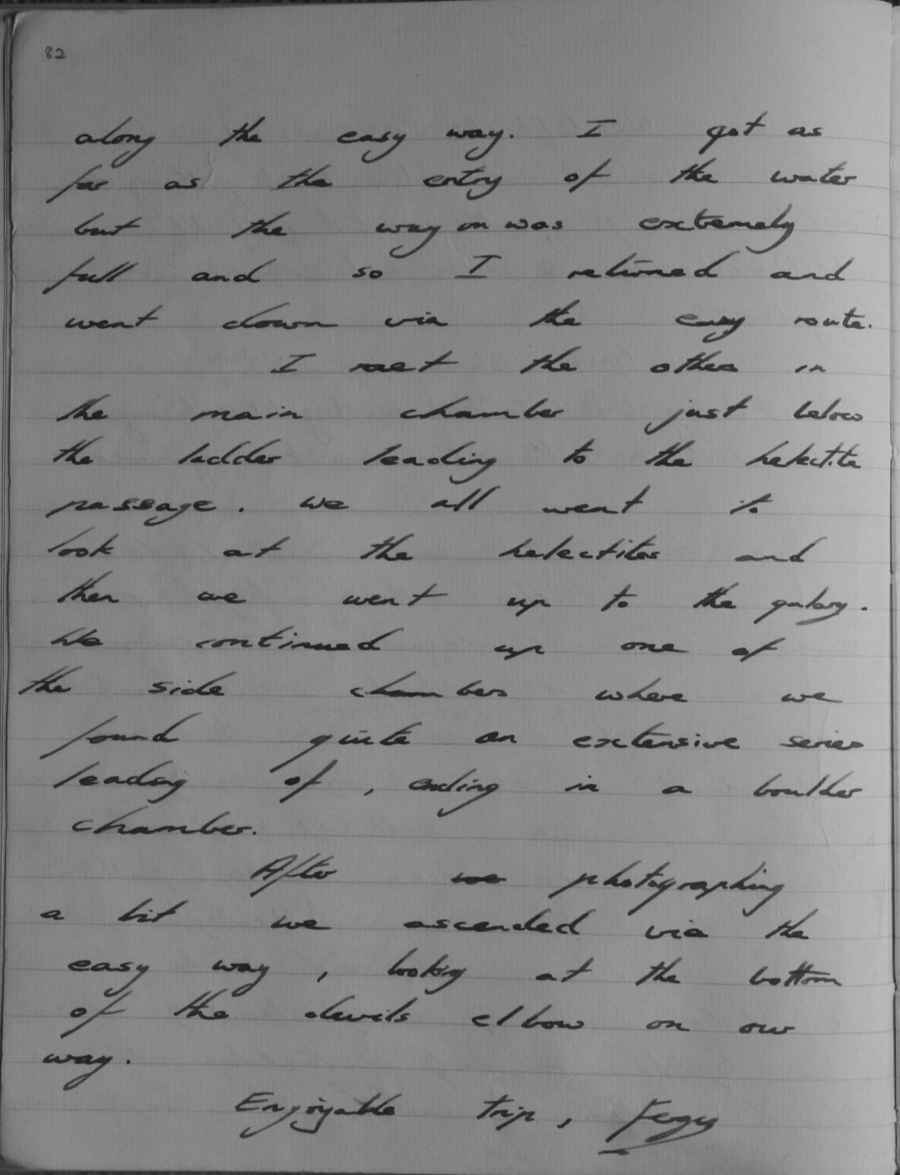 82
along the easy way. I got as
far as the entry of the water
but the way on was extremely
full and so I returned and
went down via the easy route.
I met the others in
the main chamber just below
the ladder leading to the helectite
passage. We all went to
look at the helectites and
then we went up to the galary.
We continued up one of
the side chambers where we
found quite an extensive series
leading of, ending in a boulder
chamber.
After we photographing
a bit we ascended via the
easy way, looking at the bottom
of the devils elbow on our
way.
Enjoyable trip,